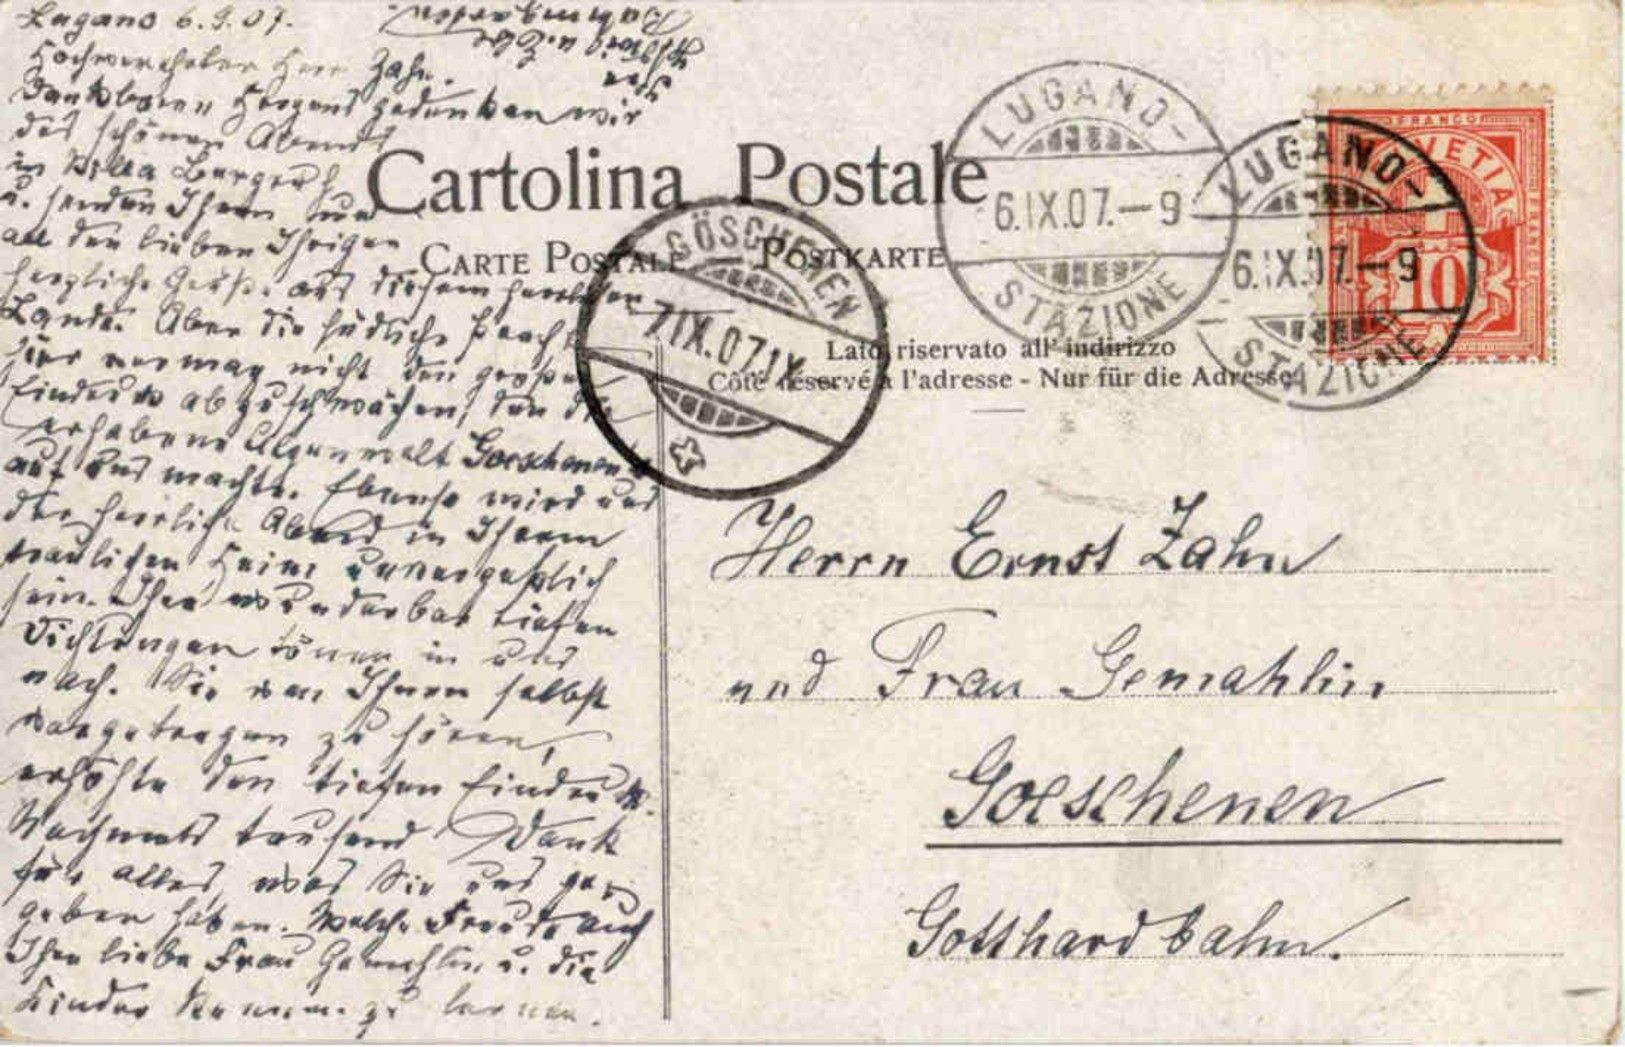 Lugano 6.9.07.
Hochverehrter Herr Zahn.
Dankbaren Herzens gedenken wir
des schönen Abends
in Villa
u. senden Ihnen und
all den lieben Ihrigen
herzliche Grüße aus diesem herrlichen
Lande. Aber die südliche Pracht
hier vermag nicht den großen
Eindruck abzuschwächen, den die
erhabene Alpenwelt Goeschenen's
auf uns machte. Ebenso wird uns
der herrliche Abend in Ihrem
traulichen Heim unvergeßlich
sein. Ihre wunderbar tiefen
Dichtungen tönen in uns
nach. Sie von Ihnen selbst
vorgetragen zu hören,
erhöhte den tiefen Eindruck.
Nochmals tausend Dank
für alles, was Sie uns ge-
geben haben. Welche Freude auch
Ihre liebe Frau Gemahlin u. die
Kinder kennen zu lernen.
Ihre
u.
Baumgarten.
Cartolina Postale
CARTE POSTALE — POSTKARTE
Lato riservato all' indirizzo
Côté réservé à l'adresse - Nur für die Adresse
GÖSCHENEN
7.IX.07.IX
LUGANO-
6.IX.07.-9
STAZIONE
LUGANO-
6.IX.07.-9
STAZIONE
FRANCO
HELVETIA
10
Herrn Ernst Zahn
und Frau Gemahlin
Goeschenen
Gotthardbahn.